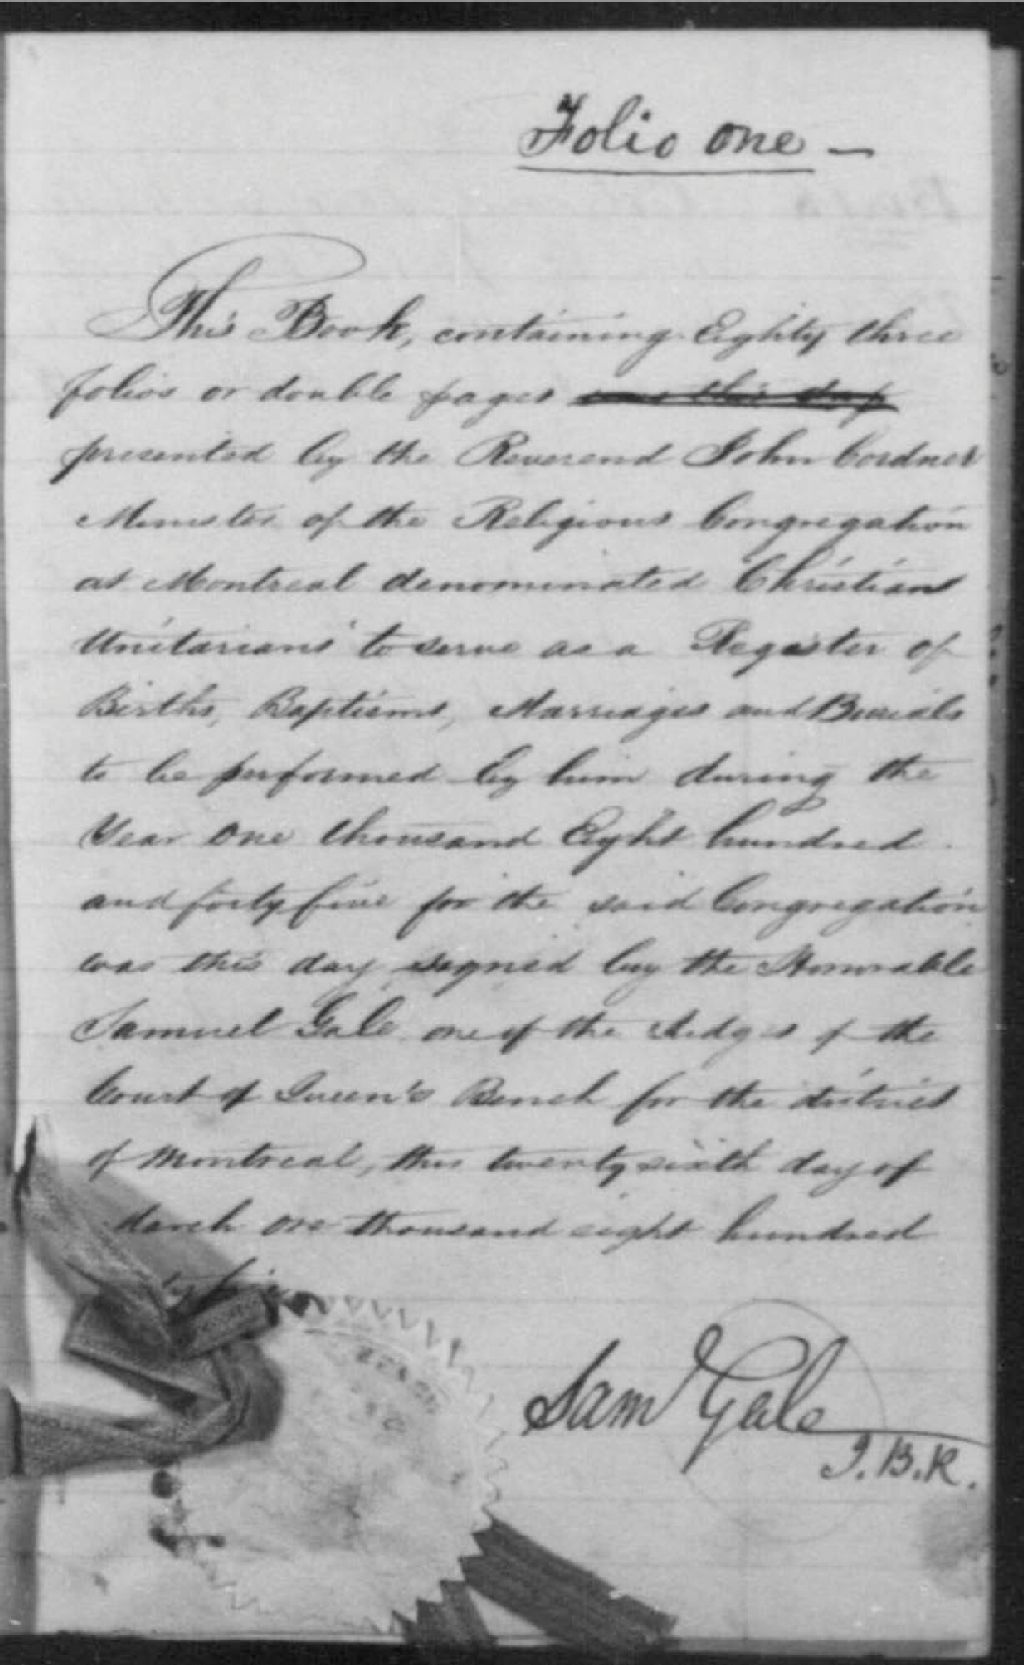 Folio one —
This Book, containing Eighty three
folios or double pages was this day
presented by the Reverend John Cordner
Minister of the Religious Congregation
at Montreal denominated Christian
Unitarians to serve as a Register of
Births, Baptisms, Marriages and Burials
to be performed by him during the
Year One thousand Eight hundred
and forty five for the said Congregation
was this day signed by the Honorable
Samuel Gale one of the Judges of the
Court of Queen's Bench for the district
of Montreal, this twenty sixth day of
March one thousand eight hundred
Saml Gale
J.B.R.